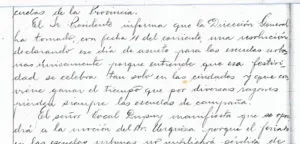 cuelas de la Provincia.
El Sr Presidente informa que la Dirección General
ha tomado, con fecha 11 del corriente, una resolución
declarando ese dia de asueto para las escuelas urba-
nas únicamente porque entiende que esa festivi-
dad se celebra tan solo en las ciudades y que con-
viene ganar el tiempo que por diversas razones
pierden siempre las escuelas de campaña.
El señor Vocal manifiesta que se opon-
drá a la moción del Sr. Urquiza, porque el feriado
en las escuelas urbanas no significará pérdida de